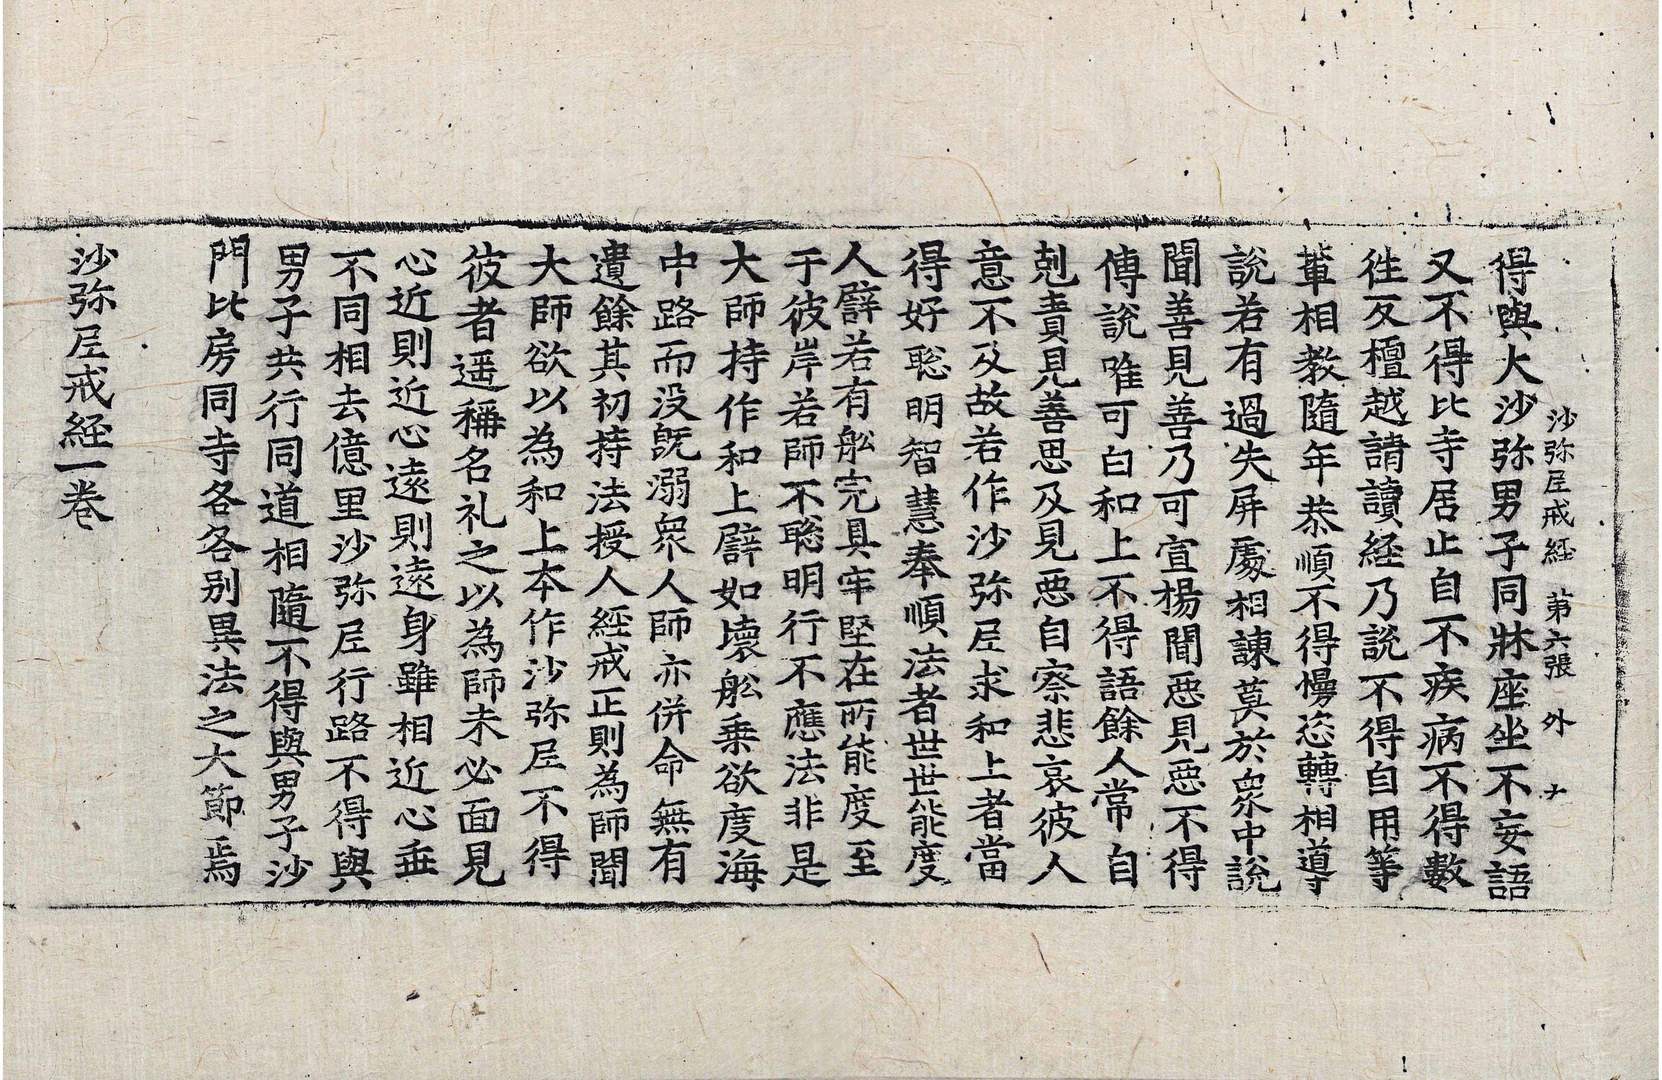 沙弥尼戒経　第六張　外
得與大沙弥男子同牀座坐不妄語
又不得比寺居止自不疾病不得數
徃反檀越請讀経乃説不得自用等
輩相教隨年恭順不得慢恣轉相導
説若有過失屏處相諫莫於衆中説
聞善見善乃可宣揚聞惡見惡不得
傳説唯可白和上不得語餘人常自
剋責見善思及見惡自察悲哀彼人
意不及故若作沙弥尼求和上者當
得好聡明智慧奉順法者世世能度
人譬若有舩完具牢堅在所能度至
于彼岸若師不聡明行不應法非是
大師持作和上譬如壊舩乗欲度海
中路而没既溺衆人師亦併命無有
遺餘其初持法授人経戒正則為師聞
大師欲以為和上本作沙弥尼不得
彼者遥稱名礼之以為師未必面見
心近則近心遠則遠身雖相近心乖
不同相去億里沙弥尼行路不得與
男子共行同道相隨不得與男子沙
門比房同寺各各别異法之大節焉
沙弥尼戒経一卷